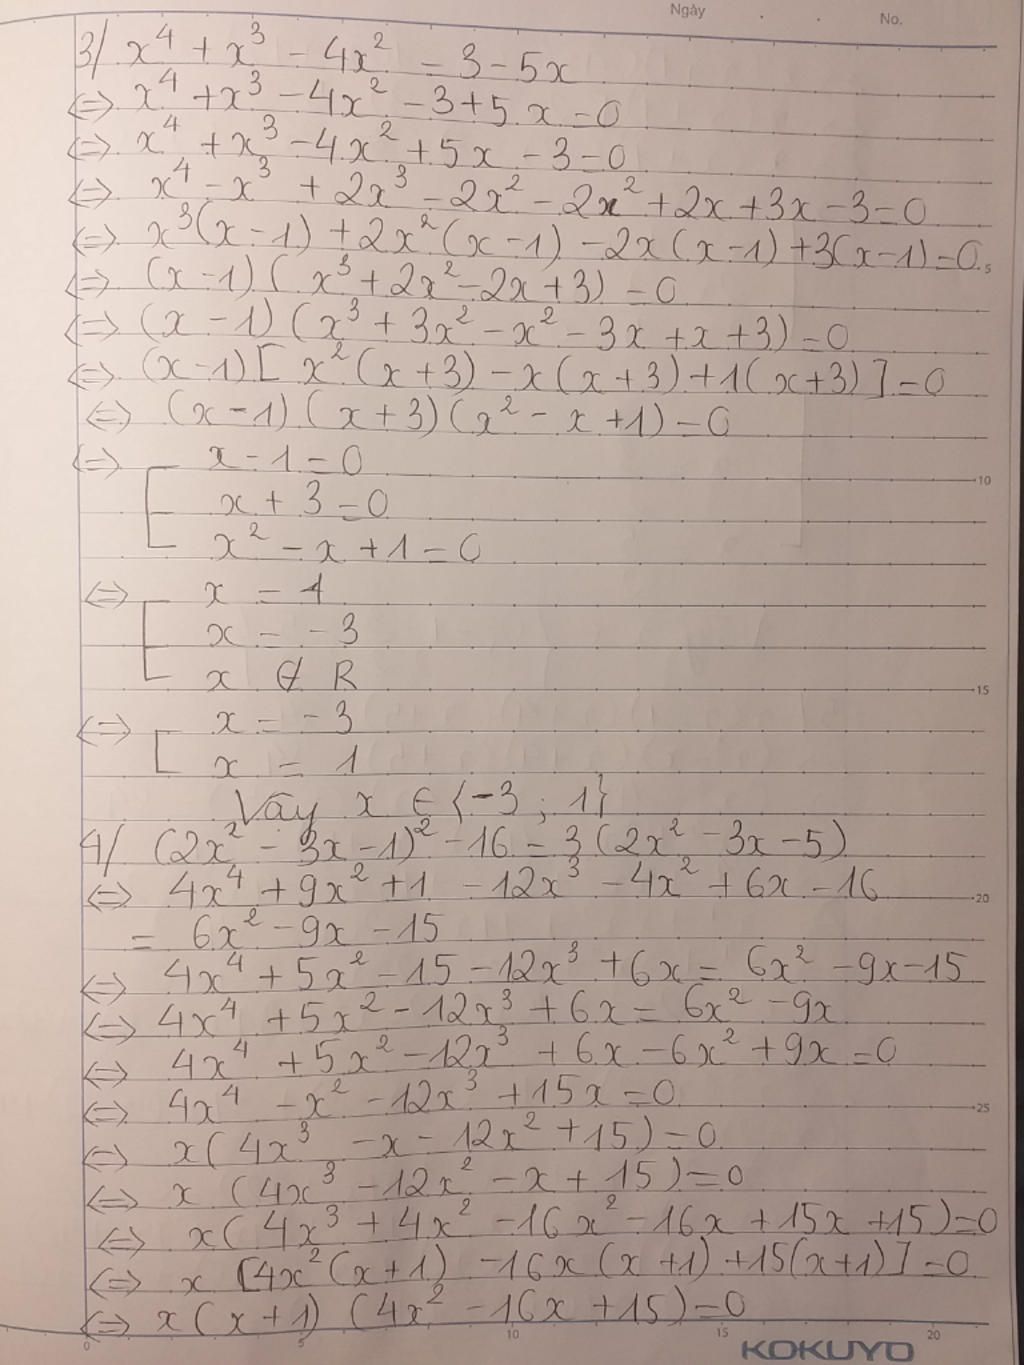 Ngày . . No.
3/ x⁴ + x³ - 4x² = 3 - 5x
⇔ x⁴ + x³ - 4x² - 3 + 5x = 0
⇔ x⁴ + x³ - 4x² + 5x - 3 = 0
⇔ x⁴ - x³ + 2x³ - 2x² - 2x² + 2x + 3x - 3 = 0
⇔ x³(x - 1) + 2x²(x - 1) - 2x(x - 1) + 3(x - 1) = 0 5
⇔ (x - 1)(x³ + 2x² - 2x + 3) = 0
⇔ (x - 1)(x³ + 3x² - x² - 3x + x + 3) = 0
⇔ (x - 1)[x²(x + 3) - x(x + 3) + 1(x + 3)] = 0
⇔ (x - 1)(x + 3)(x² - x + 1) = 0
⇔ [ x - 1 = 0 10
x + 3 = 0
x² - x + 1 = 0
⇔ [ x = 1
x = -3
x ∉ R 15
⇔ [ x = -3
x = 1
Vậy x ∈ {-3 ; 1}
4/ (2x² - 3x - 1)² - 16 = 3(2x² - 3x - 5)
⇔ 4x⁴ + 9x² + 1 - 12x³ - 4x² + 6x - 16 20
= 6x² - 9x - 15
⇔ 4x⁴ + 5x² - 15 - 12x³ + 6x = 6x² - 9x - 15
⇔ 4x⁴ + 5x² - 12x³ + 6x = 6x² - 9x
⇔ 4x⁴ + 5x² - 12x³ + 6x - 6x² + 9x = 0
⇔ 4x⁴ - x² - 12x³ + 15x = 0 25
⇔ x(4x³ - x - 12x² + 15) = 0
⇔ x(4x³ - 12x² - x + 15) = 0
⇔ x(4x³ + 4x² - 16x² - 16x + 15x + 15) = 0
⇔ x[4x²(x + 1) - 16x(x + 1) + 15(x + 1)] = 0
⇔ x(x + 1)(4x² - 16x + 15) = 0
0 5 10 15 20
KOKUYO